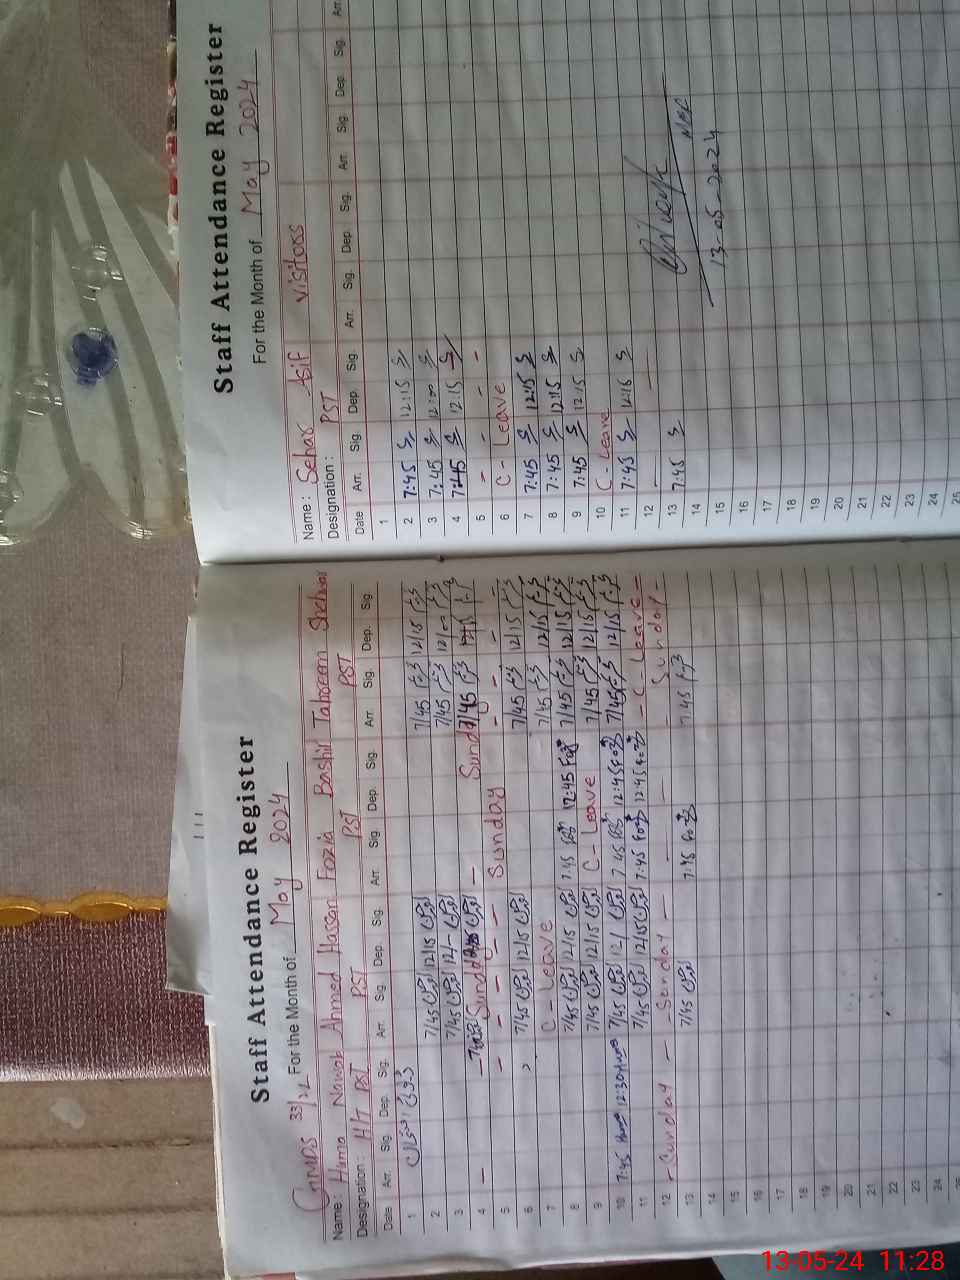 Staff Attendance Register
GMPS 33/2L For the Month of May 2024
Name: Huma Nawab Ahmed Hassan Fozia Bashir Tabseem Shehzad
Designation: H/T PST PST PST PST
Date Arr. Sig. Dep. Sig. Arr. Sig. Dep. Sig. Arr. Sig. Dep. Sig. Arr. Sig. Dep. Sig.
1
2 7/45 12/15 7/45 12/15
3 7/45 12/- 7/45 12/-
4 Sunday Sunday 7/45
5 Sunday
6 7/45 12/15 7/45 12/15
7 C-Leave 7/45 12/15
8 7/45 12/15 7:45 12:45 7/45 12/15
9 7/45 12/15 C-Leave 7/45 12/15
10 7:45 Huma 12:30 Huma 7/45 12/ 7:45 12:45 7/45 12/15
11 7/45 12/15 7:45 12:45 - C-Leave -
12 - Sunday - - Sunday - - Sunday -
13 7/45 7:45 7:45
14
15
16
17
18
19
20
21
22
23
24
Staff Attendance Register
For the Month of May 2024
Name: Sehar Asif Visitors
Designation: PST
Date Arr. Sig. Dep. Sig. Arr. Sig. Dep. Sig. Arr. Sig. Dep. Sig. Arr.
1
2 7:45 12:15
3 7:45 12:00
4 7:45 12:15
5 - - - -
6 C - Leave
7 7:45 12:15
8 7:45 12:15
9 7:45 12:15
10 C - Leave
11 7:45 12:16
12
13 7:45
14
15
16
17
18
19
20
21
22
23
24
25
13-05-2024
13-05-24 11:28